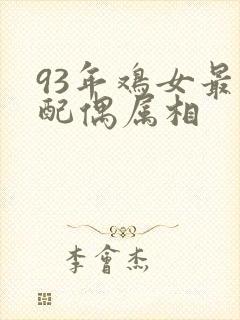 93年鸡女最
配偶属相
李會杰